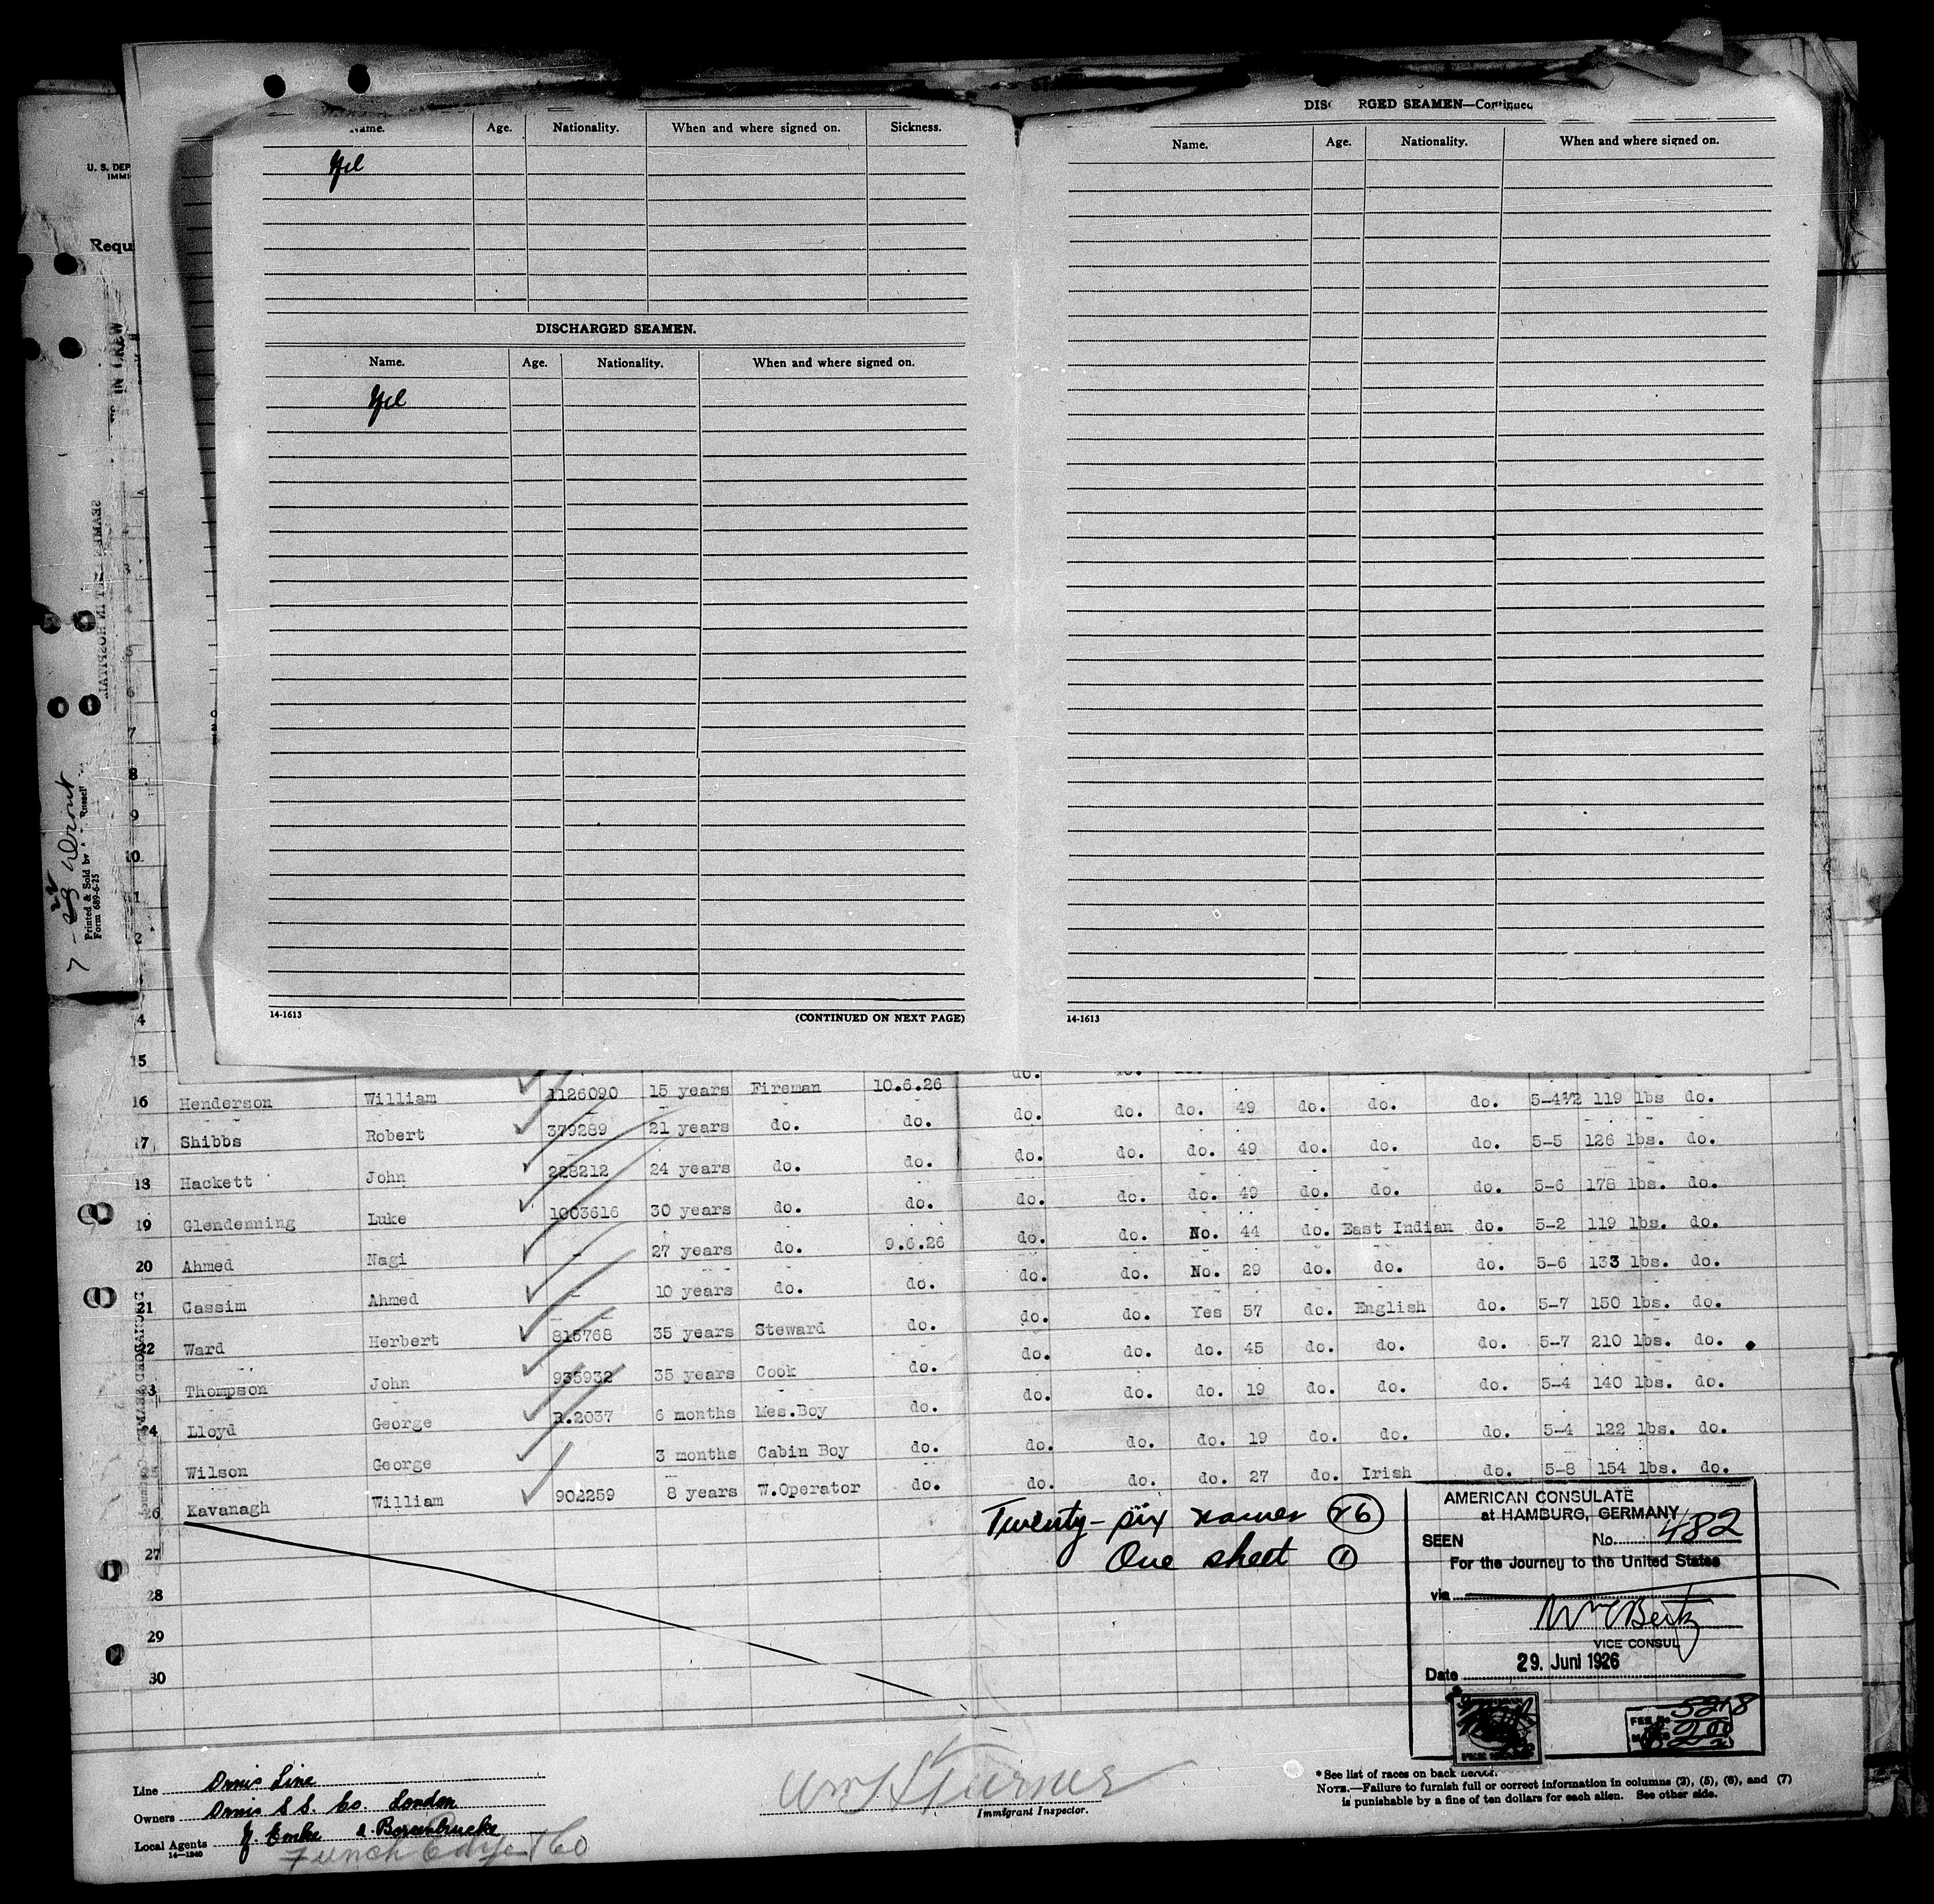 U. S. DEP
IMMI
Requ
Name. Age. Nationality. When and where signed on. Sickness.
DISCHARGED SEAMEN.
Name. Age. Nationality. When and where signed on.
14-1613 (CONTINUED ON NEXT PAGE)
DISC RGED SEAMEN—Continued
Name. Age. Nationality. When and where signed on.
14-1613
Printed & Sold by
Form 689-6-25
7
8
9
10
15
16 Henderson William 1126090 15 years Fireman 10.6.26 do. do. do. 49 do. do. do. 5-4½ 119 lbs do.
17 Shibbs Robert 379289 21 years do. do. do. do. do. 49 do. do. do. 5-5 126 lbs. do.
18 Hackett John 228212 24 years do. do. do. do. do. 49 do. do. do. 5-6 178 lbs. do.
19 Glendenning Luke 1003616 30 years do. do. do. do. No. 44 do. East Indian do. 5-2 119 lbs. do.
20 Ahmed Nagi - 27 years do. 9.6.26 do. do. No. 29 do. do. do. 5-6 133 lbs. do.
21 Cassim Ahmed - 10 years do. do. do. do. Yes 57 do. English do. 5-7 150 lbs. do.
22 Ward Herbert 815768 35 years Steward do. do. do. do. 45 do. do. do. 5-7 210 lbs. do.
23 Thompson John 935932 35 years Cook do. do. do. do. 19 do. do. do. 5-4 140 lbs. do.
24 Lloyd George R.2037 6 months Mes.Boy do. do. do. do. 19 do. do. do. 5-4 122 lbs. do.
25 Wilson George 3 months Cabin Boy do. do. do. do. 27 do. Irish do. 5-8 154 lbs. do.
26 Kavanagh William 902259 8 years W.Operator do.
Twenty-six names 26
One sheet 1
27
28
29
30
AMERICAN CONSULATE
at HAMBURG, GERMANY
SEEN No. 482
For the Journey to the United States
via
VICE CONSUL
Date 29. Juni 1926
5218
Line Ornis Line
Owners Ornis S.S. Co. London
Local Agents
14-1240
Wm H Turner
Immigrant Inspector.
* See list of races on back hereof.
NOTE.—Failure to furnish full or correct information in columns (2), (5), (6), and (7)
is punishable by a fine of ten dollars for each alien. See other side.